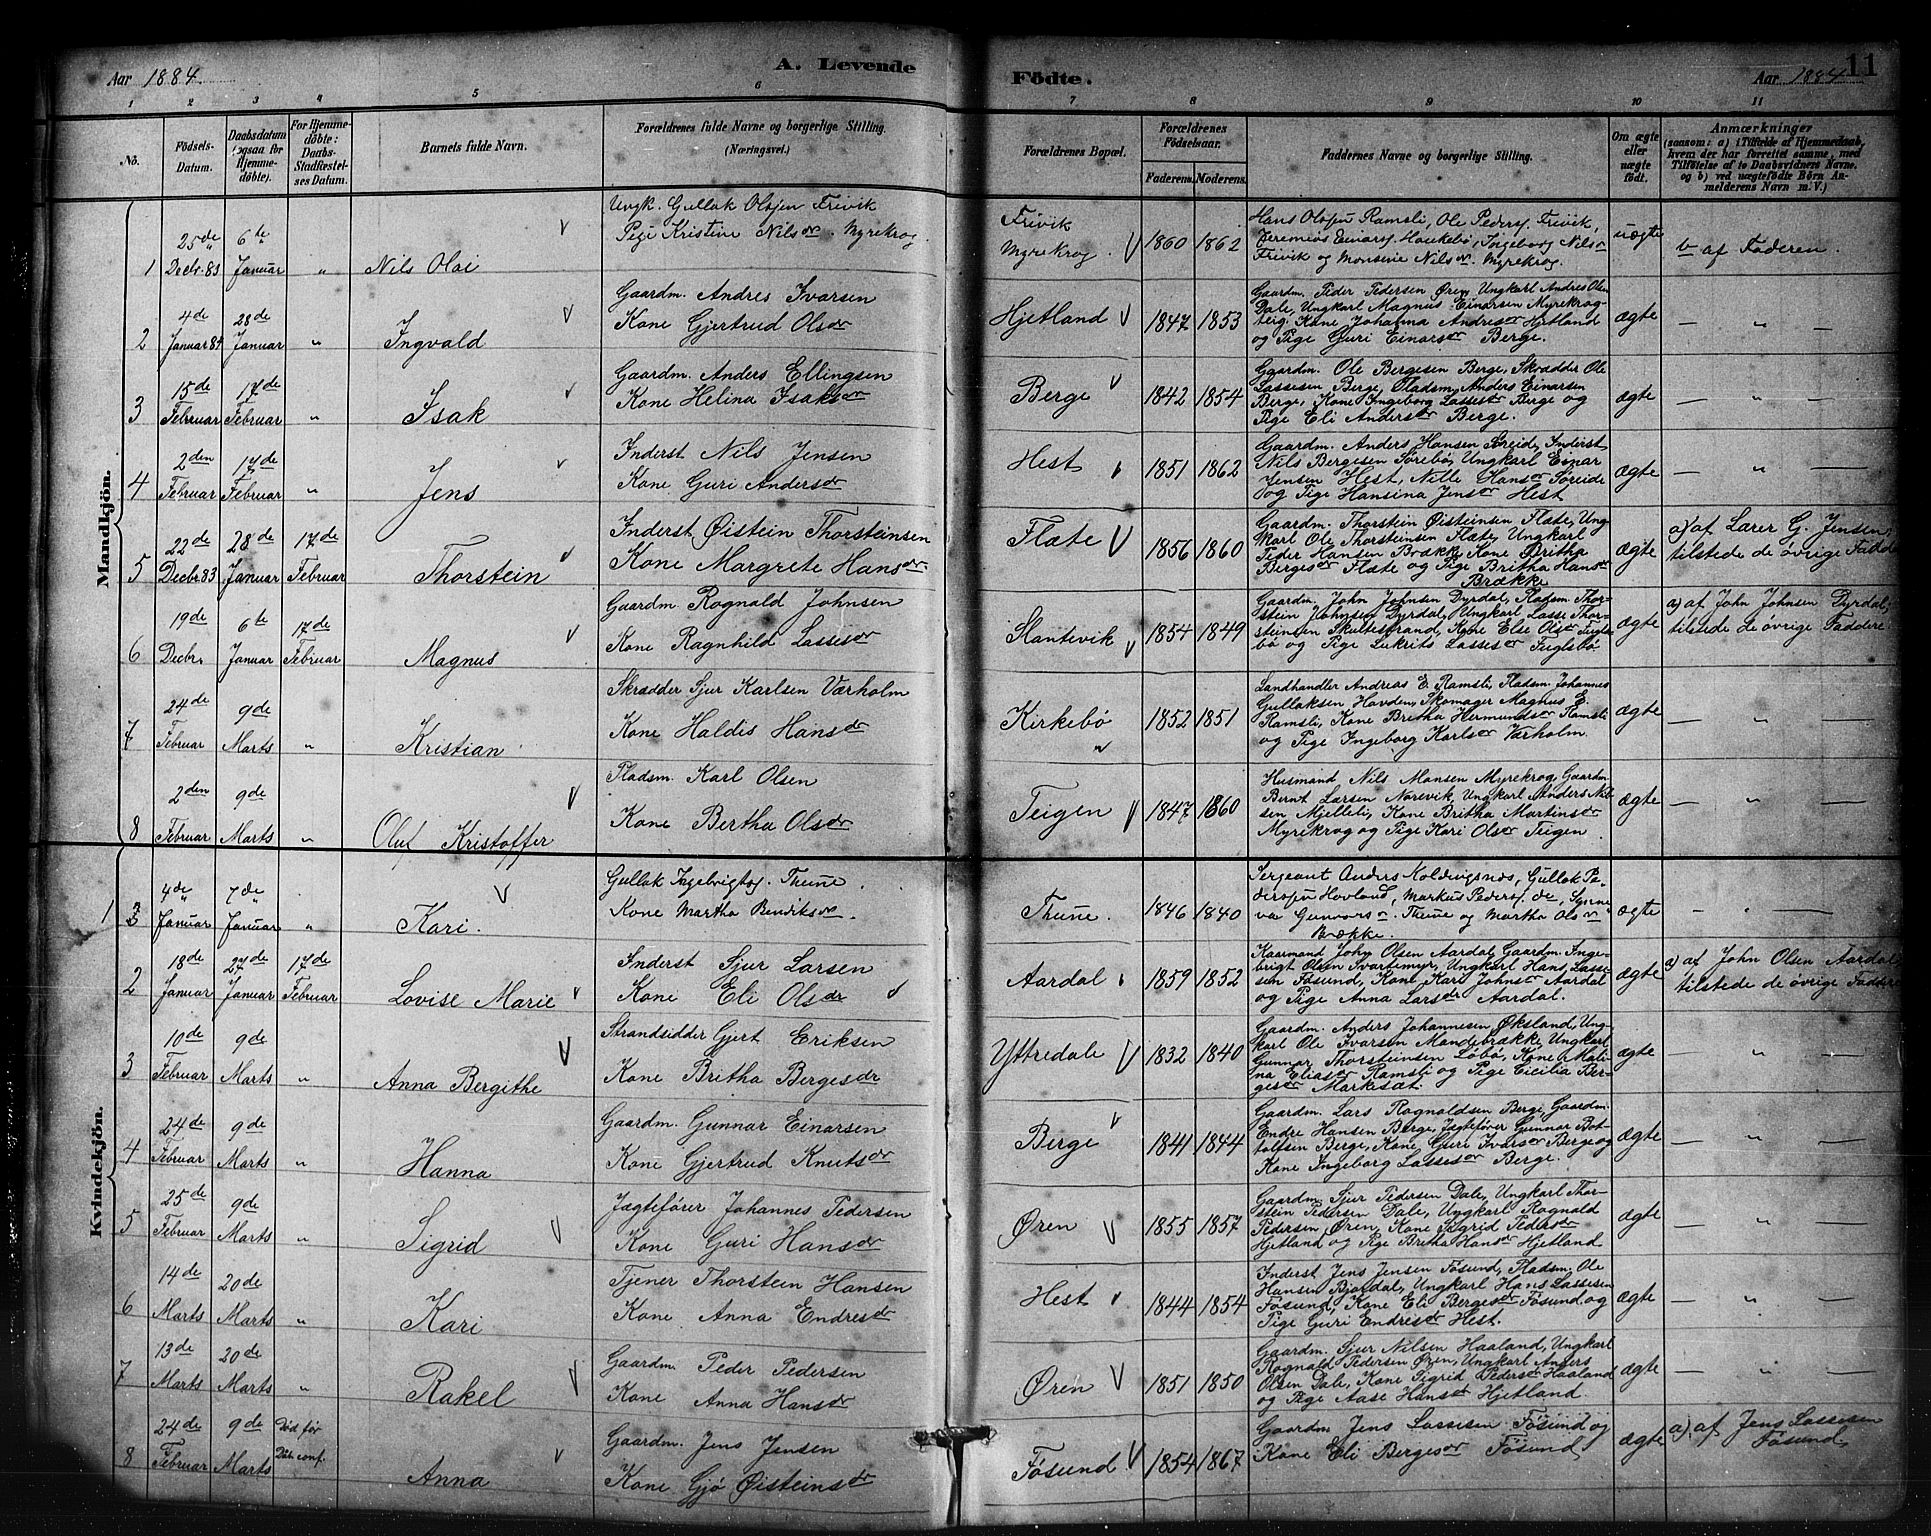 Aar 1884.
A. Levende Födte.
Aar 1884
11
1 2 3 4 5 6 7 8 9 10 11
No.
Födsels-Datum.
Daabsdatum (ogsaa for Hjemmedöbte).
For Hjemmedöbte: Daabs-Stadfæstelses Datum.
Barnets fulde Navn.
Forældrenes fulde Navne og borgerlige Stilling. (Næringsvei.)
Forældrenes Bopæl.
Forældrenes Födselsaar.
Faderens. Moderens.
Faddernes Navne og borgerlige Stilling.
Om ægte eller uægte födt.
Anmærkninger
(saasom: a) i Tilfælde af Hjemmedaab, hvem der har forrettet samme, med Tilföielse af to Daabsvidners Navne, og b) ved uægtefödte Börn Anmelderens Navn m. V.)
Mandkjön.
1 25de Decbr. 83 6te Januar " Nils Olai
Ungk. Gullak Olsen Frivik
Pige Kristine Nilsdr. Myrekrog
Frivik
Myrekrog 1860 1862
Hans Olsen Ramsli, Ole Peders. Frivik,
Jeremias Einars. Haukebø, Ingeborg Nilsdr
Frivik og Monsine Nilsdr. Myrekrog.
uægte b af Faderen.
2 4de Januar 84 28de Januar " Ingvald
Gaardm. Andres Ivarsen
Kone Gjertrud Olsdr
Hjetland 1847 1853
Gaardm. Peder Pedersen Øren, Ungkarl Andres Olsen
Dale, Ungkarl Magnus Einarsen Myrekrog-
teig, Kone Johanna Andresdr Hjetland
og Pige Guri Einarsdr Berge.
ægte — " —
3 15de Februar 17de Februar " Isak
Gaardm. Anders Ellingsen
Kone Helina Isaksdr
Berge 1842 1854
Gaardm. Ole Bergesen Berge, Skrædder Ole
Lassesen Berge, Pladsm. Anders Einarsen
Berge, Kone Ingeborg Lassesdr Berge og
Pige Eli Andersdr Berge.
ægte — " —
4 2den Februar 17de Februar " Jens
Inderst Nils Jensen
Kone Guri Andersdr
Hest 1851 1862
Gaardm. Anders Hansen Søreide, Inderst
Nils Bergesen Sørebø, Ungkarl Einar
Jensen Hest, Nille Hansdr Søreide
og Pige Hansina Jensdr Hest
ægte — " —
5 22de Decbr. 83 28de Januar 17de Februar Thorstein
Inderst Øistein Thorsteinsen
Kone Margrete Hansdr
Flæte 1856 1860
Gaardm. Thorstein Øisteinsen Flæte, Ung-
karl Ole Thorsteinsen Flæte, Ungkarl
Peder Hansen Brække, Kone Britha
Bergesdr Flæte og Pige Britha Hansdr
Brække
ægte a) af Lærer G. Jensen,
tilstede de øvrige Faddere
6 19de Decbr. 6te Januar 17de Februar Magnus
Gaardm. Rognald Johnsen
Kone Ragnhild Lassesdr
Slantevik 1854 1849
Gaardm. John Johnsen Dyrdal, Pladsm. Thor-
stein Johnsen Dyrdal, Ungkarl Lasse Thor-
steinsen Skultestrand, Kone Else Olsdr Fugls-
bø og Pige Lukrits Lassesdr Fuglsbø
ægte a) af John Johnsen Dyrdal,
tilstede de øvrige Faddere
7 24de Februar 9de Marts " Kristian
Skrædder Sjur Karlsen Værholm
Kone Haldis Hansdr
Kirkebø 1852 1851
Landhandler Andreas E. Ramsli, Pladsm. Johannes
Gullaksen Havden, Skomager Magnus E.
Ramsli, Kone Britha Hermundsdr Ramsli
og Pige Ingeborg Karlsdr Værholm.
ægte — " —
8 2den Februar 9de Marts " Oluf Kristoffer
Pladsm. Karl Olsen
Kone Bertha Olsdr
Teigen 1847 1860
Husmand Nils Monsen Myrekrog, Gaardm.
Bernt Larsen Norevik, Ungkarl Anders Nil-
sen Mjelleli, Kone Britha Martinsdr
Myrekrog og Pige Kari Olsdr Teigen
ægte — " —
Kvindekjön.
1 4de Januar 7de Januar " Kari.
Gullak Thune.
Kone Martha Bendiksdr.
Thune. 1846 1840
Sergeant Anders Koldevignæs, Gullak Pe-
dersen Hovland, Markus Peders. do, Synne-
va Gunnarsdr. Thune og Martha Olsdr
Brække.
ægte — " —
2 18de Januar 27de Januar 17de Februar Lovise Marie
Inderst Sjur Larsen
Kone Eli Olsdr
Aardal 1859 1852
Kaarmand John Olsen Aardal, Gaardm. Inge-
brigt Olsen Svartemyr, Ungkarl Hans Lasse-
sen Føsund, Kone Kari Johnsdr Aardal
og Pige Anna Larsdr Aardal.
ægte a) af John Olsen Aardal
tilstede de øvrige Faddere
3 10de Februar 9de Marts " Anna Bergithe
Strandsidder Gjert Eriksen
Kone Britha Bergesdr
Yttredale 1832 1840
Gaardm. Anders Johannesen Øksland, Ung-
karl Ole Ivarsen Mandebrække, Ungkarl
Gunnar Thorsteinsen Løbø, Kone Mali-
na Eliasdr Ramsli og Pige Cicilia Ber-
gesdr Markesæt.
ægte — " —
4 24de Februar 9de Marts " Hanna
Gaardm. Gunnar Einarsen
Kone Gjertrud Knutsdr
Berge 1841 1844
Gaardm. Lars Rognaldsen Berge, Gaardm.
Endre Hansen Berge, Jagtefører Gunnar Bot-
tolfsen Berge, Kone Guri Ivarsdr Berge og
Kone Ingeborg Lassesdr Berge.
ægte — " —
5 25de Februar 9de Marts " Sigrid
Jægtefører Johannes Pedersen
Kone Guri Hansdr
Øren 1855 1857
Gaardm. Sjur Pedersen Dale, Ungkarl Thor-
stein Pedersen Dale, Ungkarl Rognald
Pedersen Øren, Kone Sigrid Pedersdr
Hjetland og Pige Britha Hansdr Hjetland
ægte — " —
6 14de Marts 20de Marts " Kari
Tjener Thorstein Hansen
Kone Anna Endresdr
Hest 1844 1854
Inderst Jens Jensen Føsund, Pladsm. Ole
Hansen Bjordal, Ungkarl Hans Lassesen
Føsund, Kone Eli Bergesdr Føsund og
Pige Guri Endresdr Hest.
ægte — " —
7 13de Marts 20de Marts " Rakel
Gaardm. Peder Pedersen
Kone Anna Hansdr
Øren 1851 1850
Gaardm. Sjur Nilsen Haaland, Ungkarl
Rognald Pedersen Øren, Ungkarl Anders
Olsen Dale, Kone Sigrid Pedersdr Haaland
og Pige Aase Hansdr Hjetland.
ægte — " —
8 24de Februar 9de Marts Død før Daab. conf. Anna
Gaardm. Jens Jensen
Kone Gjø Øisteinsdr
Føsund 1854 1867
Gaardm. Jens Lassesen Føsund og
Kone Eli Bergesdr Føsund
ægte a) af Jens Lassesen
Føsund